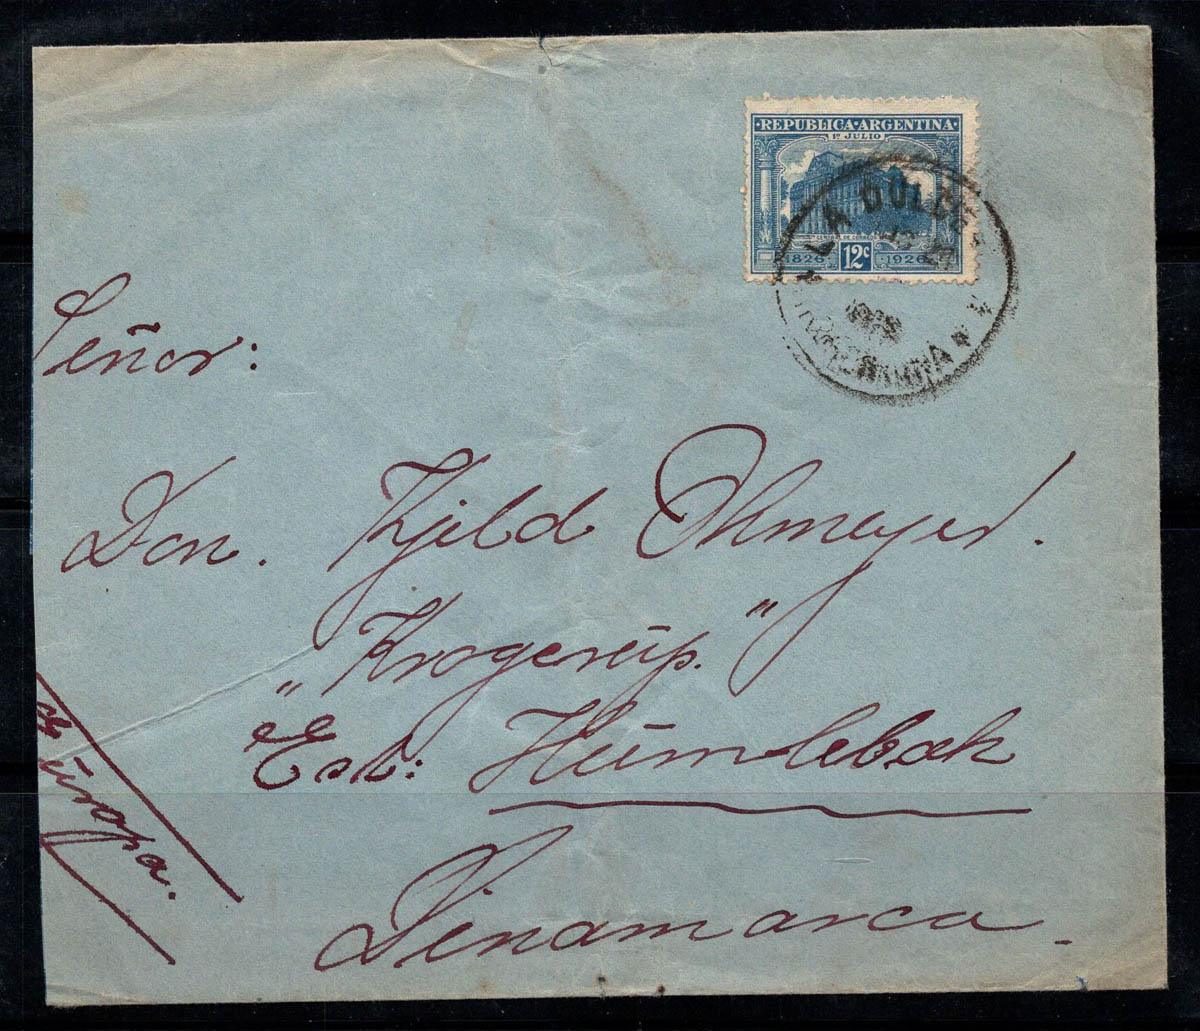 REPUBLICA ARGENTINA
1º JULIO
1826 12c 1926
LA DULCE
Señor:
Don. Kjeld Ohmeyer.
"Krogerup."
Est: Humlebæk
Dinamarca.
Europa.